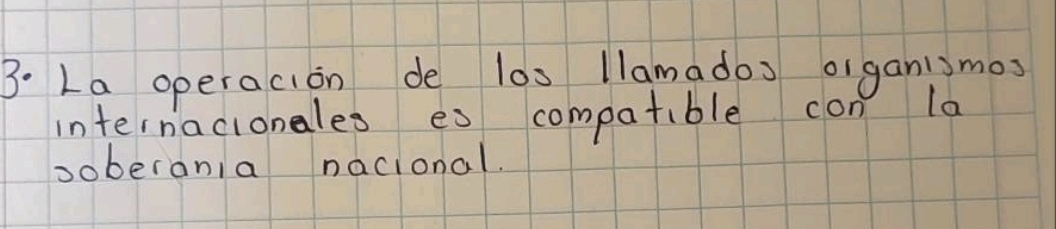 3. La operación de los llamados organismos
internacionales es compatible con la
soberania nacional.